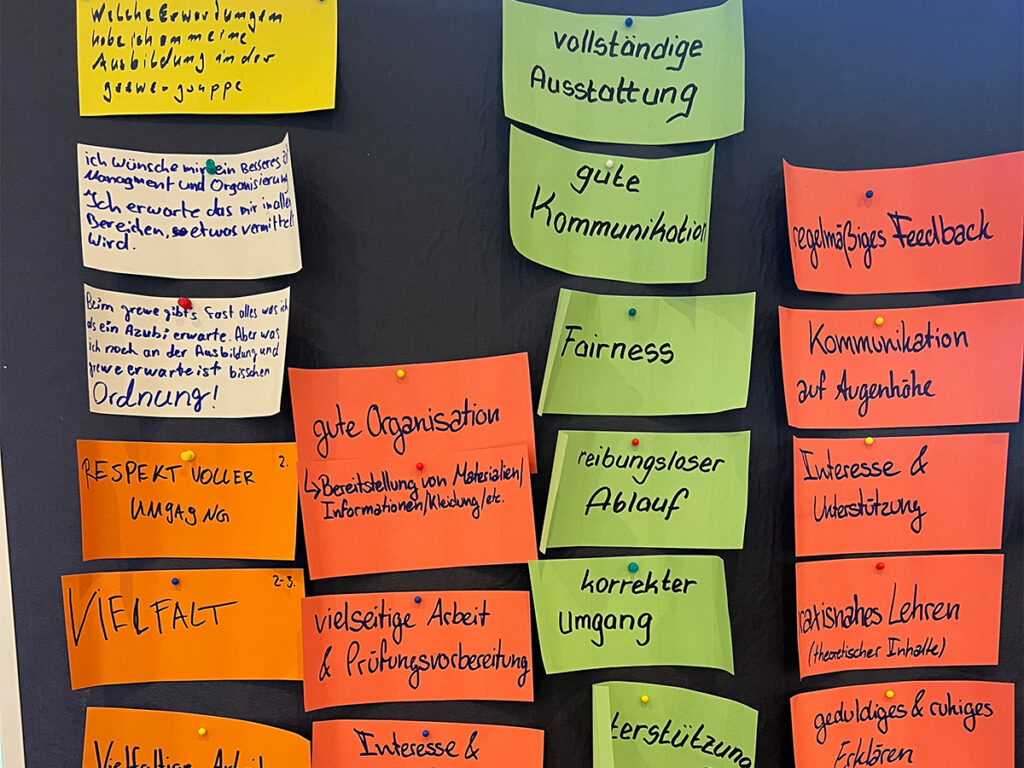 Welche Erwartungen
habe ich an meine
Ausbildung in der
grewe-gruppe
ich wünsche mir ein Besseres
Managment und Organisierung
Ich erwarte das mir in allen
Bereiden, so etwas vermittelt
wird.
Beim grewe gibt's fast alles was ich
als ein Azubi erwarte. Aber was
ich noch an der Ausbildung und
grewe erwarte ist bisschen
Ordnung!
RESPEKT VOLLER 2.
UMGAG NG
VIELFALT 2-3.
Vielfältige Arbeit
gute Organisation
↳Bereitstellung von Materialien/
Informationen/Kleidung/etc.
vielseitige Arbeit
& Prüfungsvorbereitung
Interesse &
vollständige
Ausstattung
gute
Kommunikation
Fairness
reibungsloser
Ablauf
korrekter
Umgang
terstützung
regelmäßiges Feedback
Kommunikation
auf Augenhöhe
Interesse &
Unterstützung
raxisnahes Lehren
(theoretischer Inhalte)
geduldiges & ruhiges
Erklären